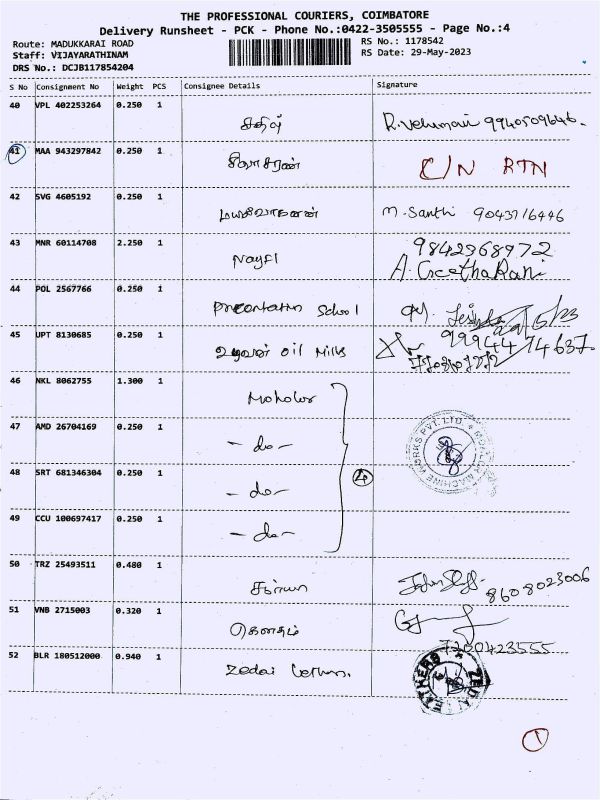 THE PROFESSIONAL COURIERS, COIMBATORE
Delivery Runsheet - PCK - Phone No.:0422-3505555 - Page No.:4
Route: MADUKKARAI ROAD
RS No.: 1178542
Staff: VIJAYARATHINAM
RS Date: 29-May-2023
DRS No.: DCJB117854204
S No Consignment No Weight PCS Consignee Details Signature
40 VPL 402253264 0.250 1 கதிஷ் R.Velumani 9940509646.
41 MAA 943297842 0.250 1 C/N RTN
42 SVG 4605192 0.250 1 M. Santhi 9043716446
43 MNR 60114708 2.250 1 9842968972
A. Geetha Rani
44 POL 2567766 0.250 1 Presentation School
45 UPT 8130685 0.250 1 உழவன் Oil Mills 99944 74637
46 NKL 8062755 1.300 1
47 AMD 26704169 0.250 1 - do -
48 SRT 681346304 0.250 1 - do - 4
49 CCU 100697417 0.250 1 - do -
50 TRZ 25493511 0.480 1 8608023006
51 VNB 2715003 0.320 1 கௌதம் 7200423555
52 BLR 180512000 0.940 1
1